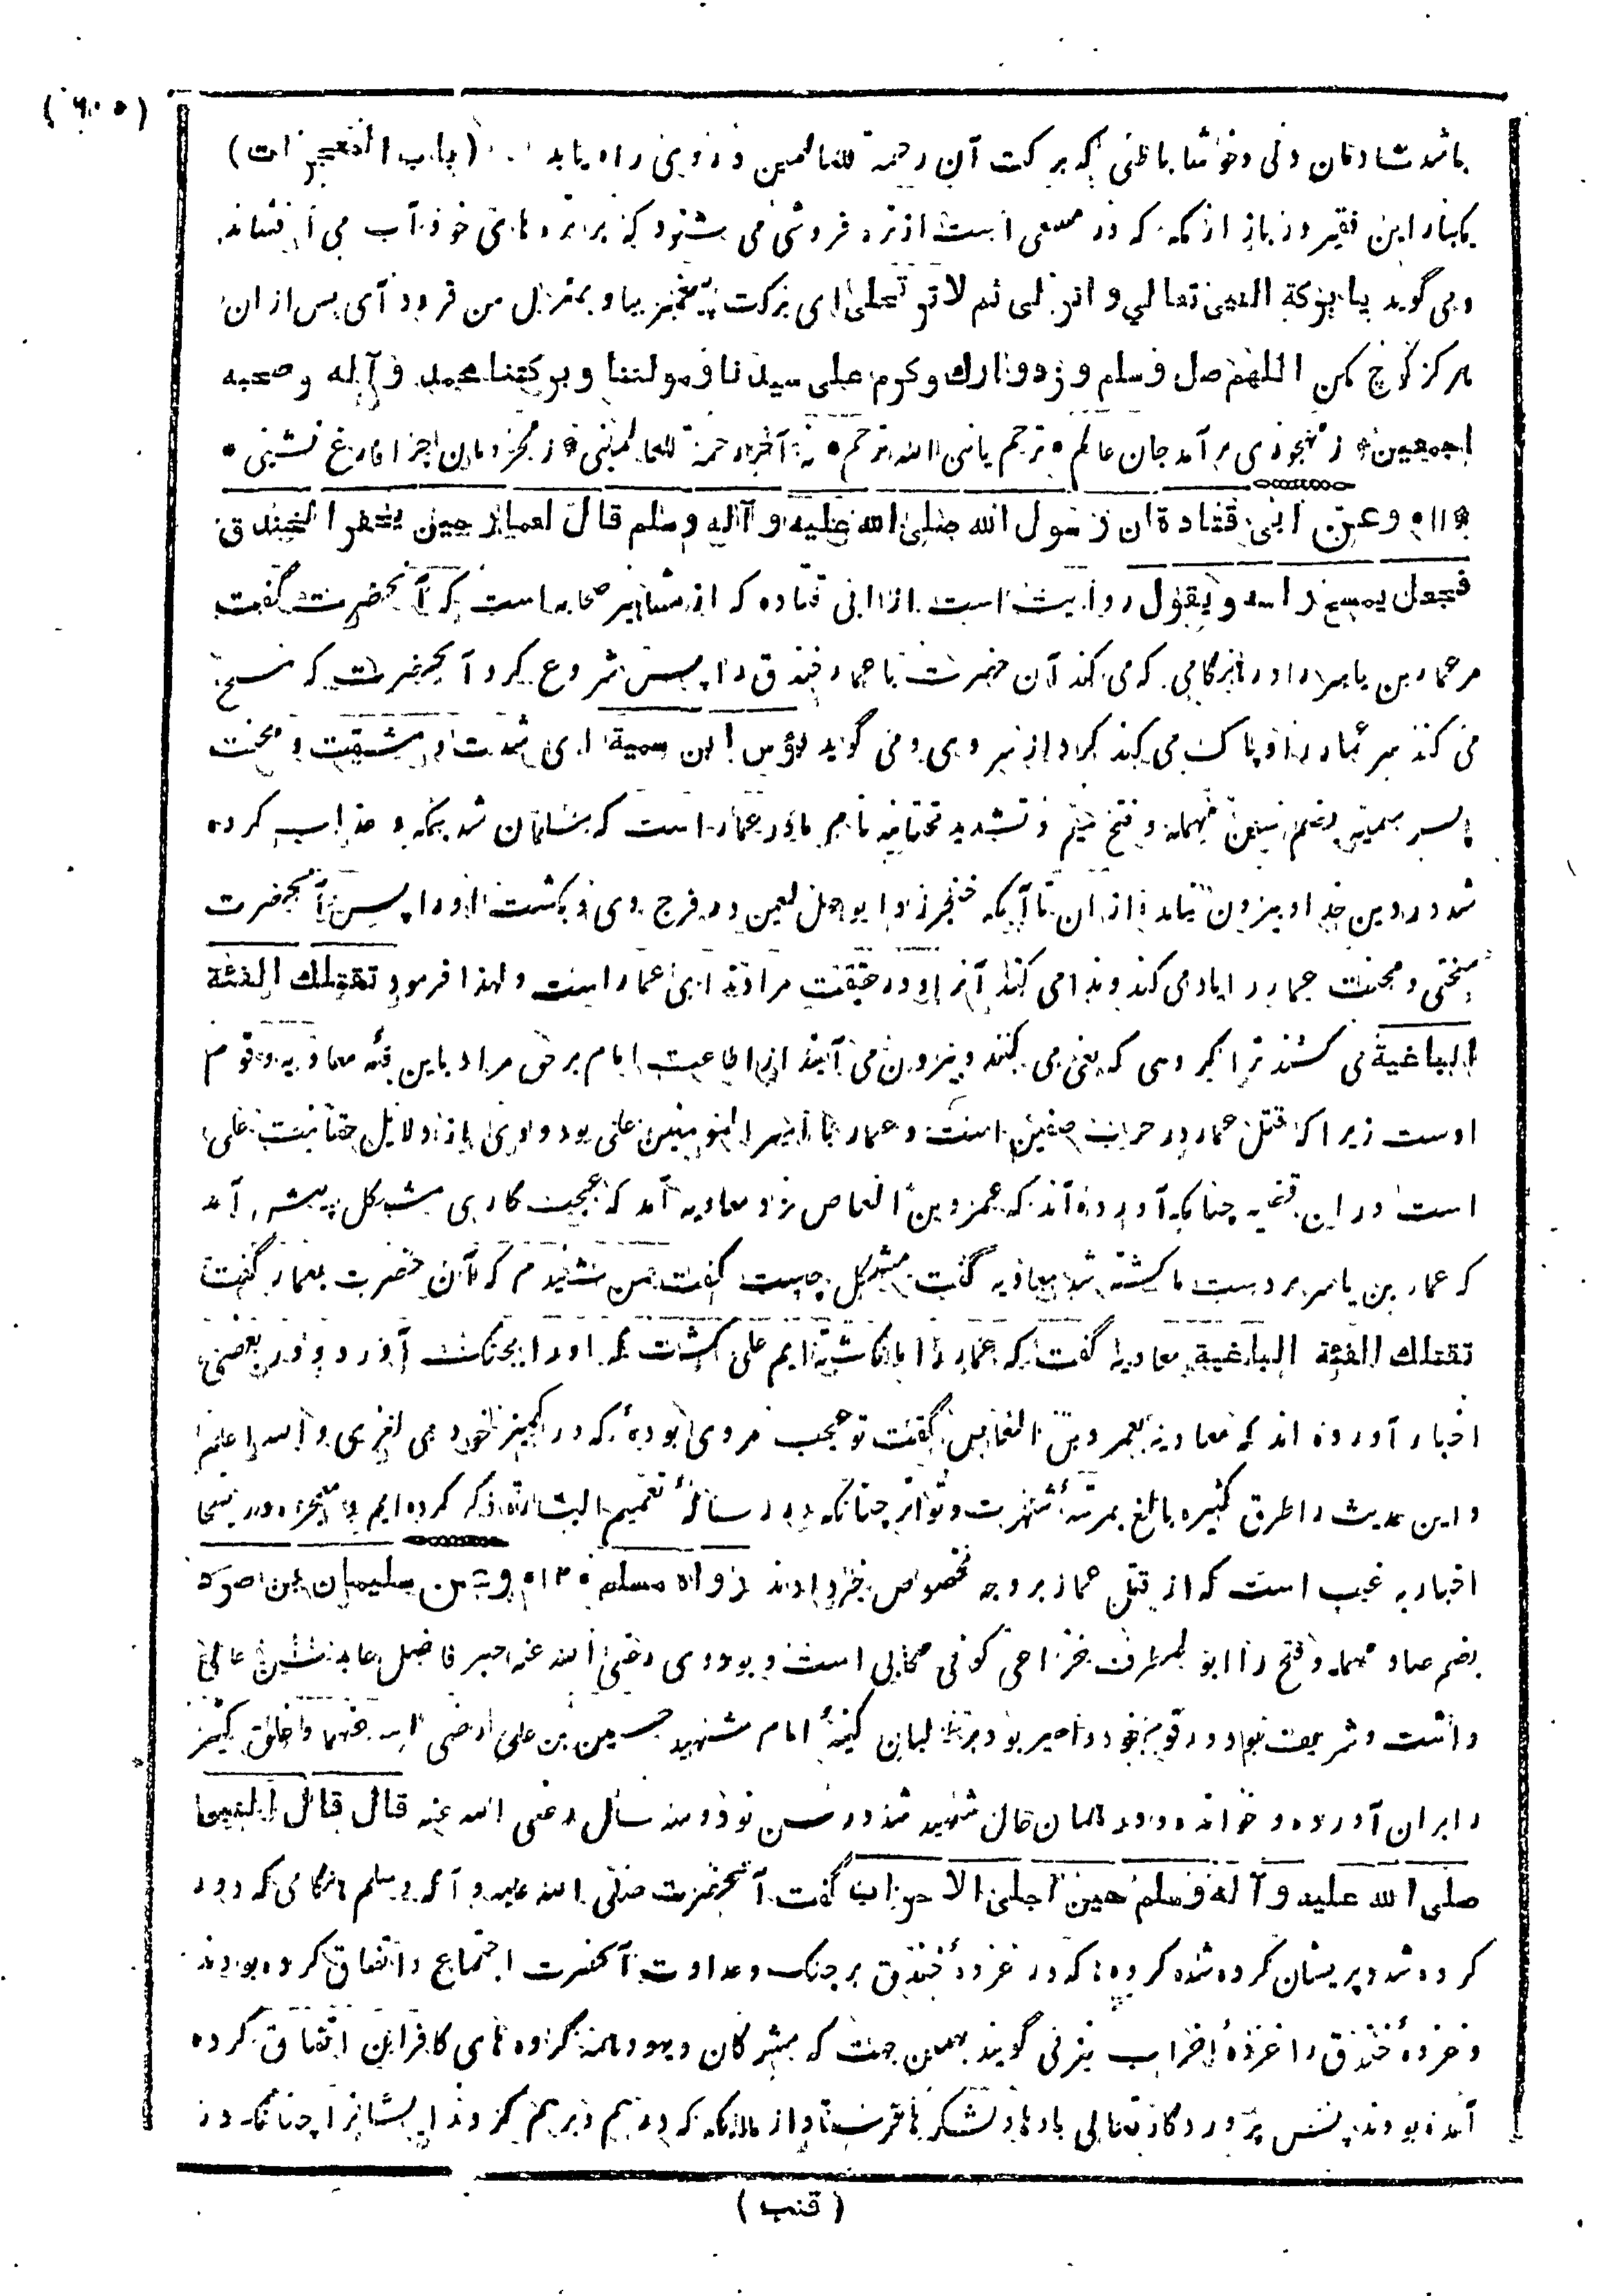 (۶۰۵)
باشد شادمان دلی و خوشا باطنی که برکت آن رحمة للعالمین در وی راه یابد (باب المعجزات)
یکبار این فقیر در بازار مکه که در مسعی است از تره فروشی می شنود که بر تره های خود آب می افشاند
و می گوید یا برکة النبی تعالي و انزلی ثم لا ترتحلی ای برکت پیغمبر بیا و بمنزل من فرود آی پس از ان
هرگز کوچ مکن اللهم صل وسلم وزد وبارك وكرم على سيدنا ومولنا وبركتنا محمد وآله وصحبه
اجمعين * ز مهجوری برآمد جان عالم * ترحم یا نبی الله ترحم * نه آخر رحمة للعالمینی * ز محرومان چرا فارغ نشینی *
* ۱۱ * وعن ابی قتادة ان رسول الله صلی الله علیه و آله وسلم قال لعمار حین یحفر الخندق
فجعل یمسح راسه ویقول روایت است از ابی قتاده که از مشاهیر صحابه است که آنحضرت گفت
مر عمار بن یاسر را در هنگامی که می کند آن حضرت یا عمار خندق را پس شروع کرد آنحضرت که مسح
می کند سر عمار را و پاک می کند گرد از سر وی و می گوید بؤس ابن سمیة ای شدت و مشقت و محنت
پسر سمیه بضم سین مهمله و فتح میم و تشدید تحتانیه نام مادر عمار است که مسلمان شد بمکه و عذاب کرده
شد در دین خدا و بیرون نیامد از ان تا آنکه خنجر زد ابو جهل لعین در فرج وی و بکشت او را پس آنحضرت
سختی و محنت عمار را یاد می کند و ندا می کند آنرا و در حقیقت مراد ندای عمار است و لهذا فرمود تقتلك الفئة
الباغیة می کشند ترا گروهی که بغی می کنند و بیرون می آیند از اطاعت امام برحق مراد باین فئه معاویه و قوم
اوست زیرا که قتل عمار در حرب صفین است و عمار با امیر المومنین علی بود و وی از دلایل حقانیت علی
است در این قضیه چنانکه آورده اند که عمرو بن العاص نزد معاویه آمد که عجیب کاری مشکل پیش آمد
که عمار بن یاسر بر دست ما کشته شد معاویه گفت مشکل چیست گفت من شنیدم که آن حضرت بعمار گفت
تقتلك الفئة الباغیة معاویه گفت که عمار را ما نکشته ایم علی کشت که او را بجنگ آورد و در بعضی
اخبار آورده اند که معاویه بعمرو بن العاص گفت تو عجب مردی بودهٔ که در کمیز خود می لغزی و الله اعلم
و این حدیث را طرق کثیره بالغ بمرتبهٔ شهرت و تواتر چنانکه در رسالهٔ تعمیم البشارة ذکر کرده ایم و معجزه در ینجا
اخبار به غیب است که از قتل عمار بر وجه مخصوص خبر دادند رواه مسلم * ۱۲ * وعن سلیمان بن صرد
بضم صاد مهمله و فتح را ابو المطرف خزاعی کوفی صحابی است و بود وی رضی الله عنه حبر فاضل عابد سن عالی
داشت و شریف بود و در قوم خود و امیر بود بر طلبان کینهٔ امام شهید حسین بن علی رضی الله عنهما و خلق کثیر
را بر ان آورده و خوانده و در همان حال شهید شد در سن نود و سه سال رضی الله عنه قال قال النبی
صلی الله علیه و آله وسلم حین اجلی الاحزاب گفت آنحضرت صلی الله علیه و آله وسلم هنگامی که دور
کرده شد و پریشان کرده شده گروهها که در غزوهٔ خندق بر جنگ و عداوت آنحضرت اجتماع و اتفاق کرده بودند
و غزوهٔ خندق را غزوهٔ احزاب نیز می گویند بهمین جهت که مشرکان و یهود و همه گروه های کافران اتفاق کرده
آمده بودند پس پروردگار تعالی بادها و لشکرها فرستاد از ملائکه که درهم و برهم کردند ایشانرا چنانکه در
(قنب)